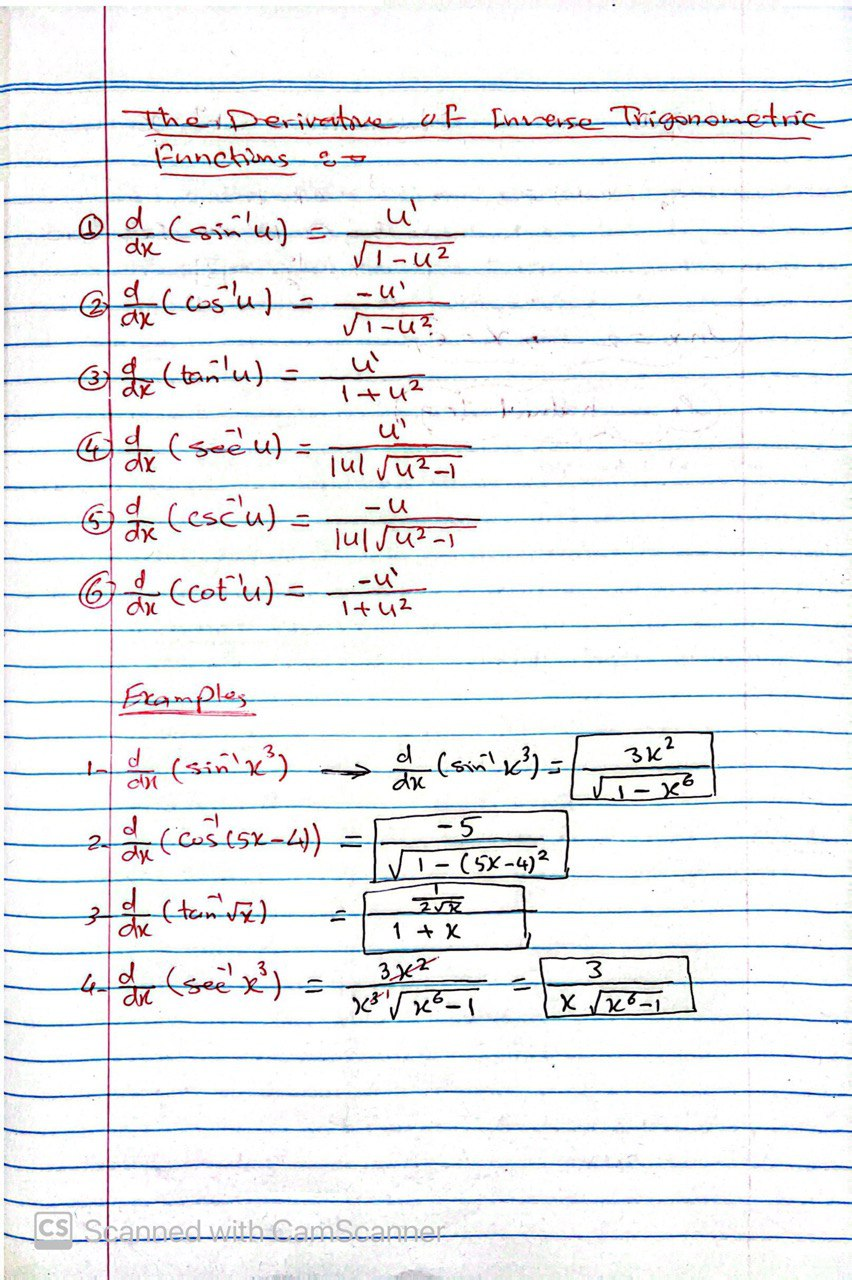 The Derivative of Inverse Trigonometric
Functions :-
① d/dx (sin⁻¹u) = u'/√(1-u²)
② d/dx (cos⁻¹u) = -u'/√(1-u²)
③ d/dx (tan⁻¹u) = u'/(1+u²)
④ d/dx (sec⁻¹u) = u'/(|u|√(u²-1))
⑤ d/dx (csc⁻¹u) = -u/(|u|√(u²-1))
⑥ d/dx (cot⁻¹u) = -u'/(1+u²)
Examples
1- d/dx (sin⁻¹x³) → d/dx (sin⁻¹x³) = 3x²/√(1-x⁶)
2- d/dx (cos⁻¹(5x-4)) = -5/√(1-(5x-4)²)
3- d/dx (tan⁻¹√x) = (1/(2√x))/(1+x)
4- d/dx (sec⁻¹x³) = 3x²/(x³√(x⁶-1)) = 3/(x√(x⁶-1))
CS Scanned with CamScanner